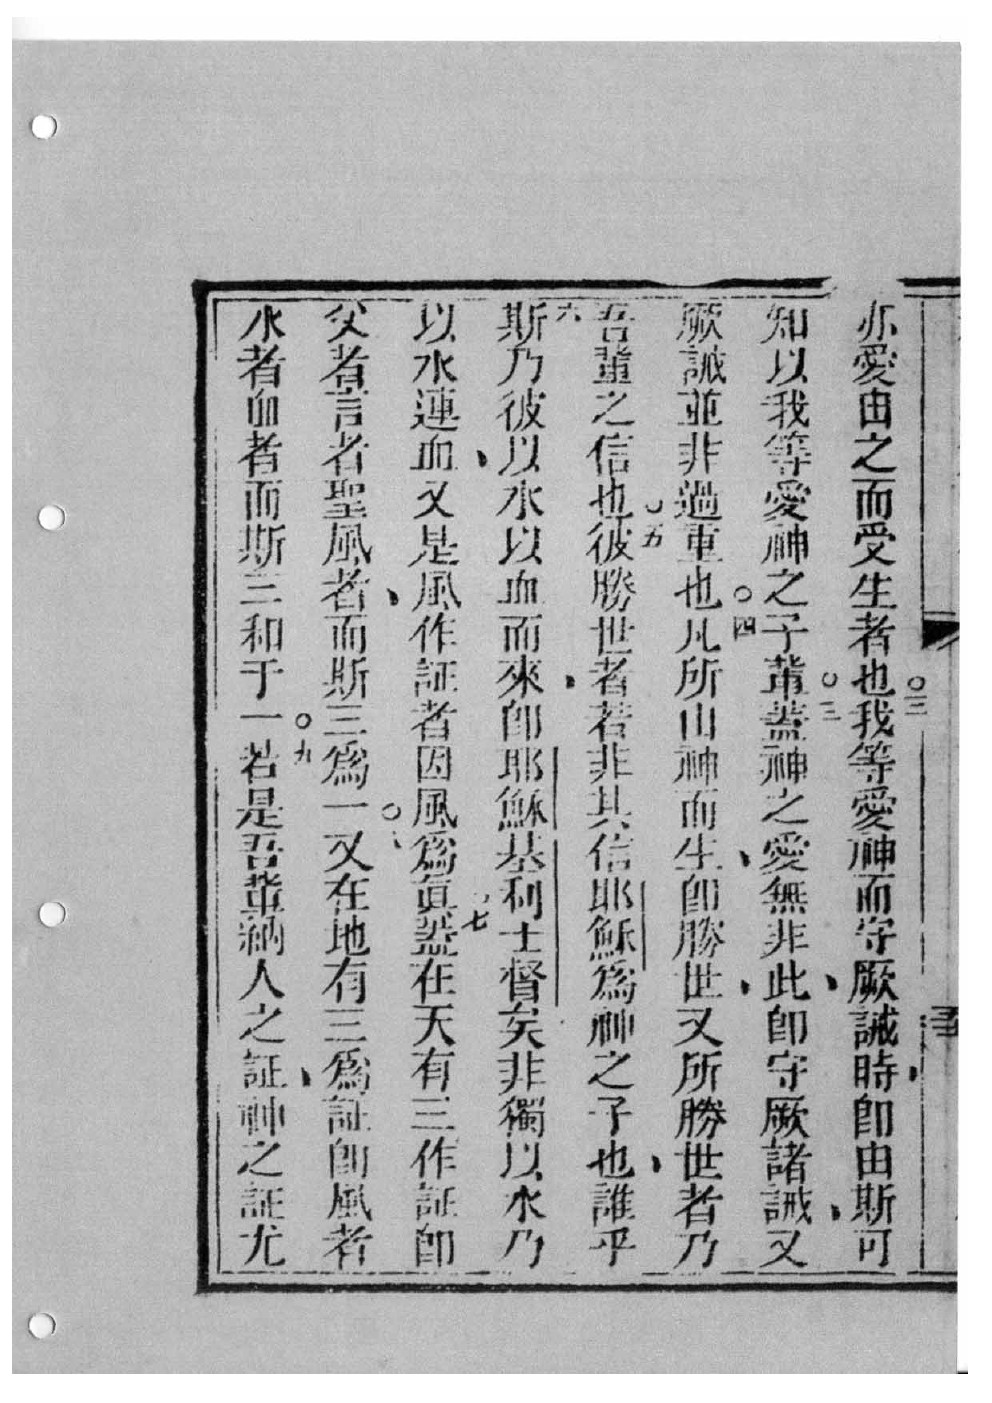 亦愛由之而受生者也○二我等愛神而守厥誡時卽由斯可
知以我等愛神之子輩○三蓋神之愛無非此卽守厥諸誡又
厥誡並非過重也○四凡所由神而生卽勝世又所勝世者乃
吾輩之信也○五彼勝世者若非其信耶穌爲神之子也誰乎
六斯乃彼以水以血而來卽耶穌基利士督矣非獨以水乃
以水連血又是風作証者因風爲眞七蓋在天有三作証卽
父者言者聖風者而斯三爲一○八又在地有三爲証卽風者
水者血者而斯三和于一○九若是吾輩納人之証神之証尤